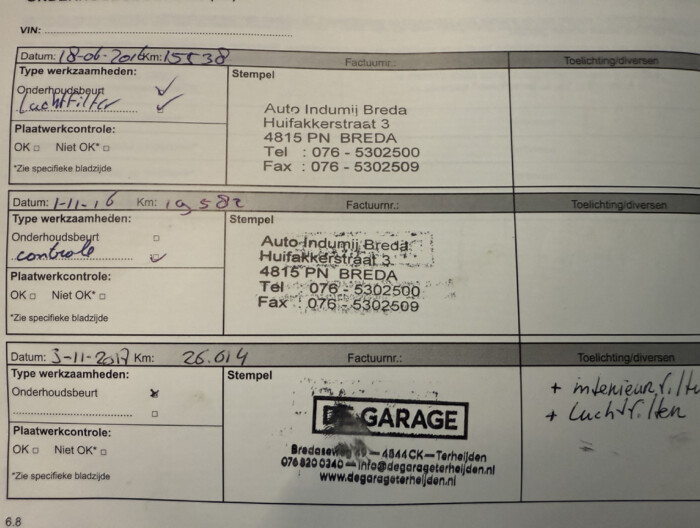 VIN:
Datum: 18-06-2016 Km: 15538 Factuurnr.: Toelichting/diversen
Type werkzaamheden: Stempel
Onderhoudsbeurt
Luchtfilter
Auto Indumij Breda
Huifakkerstraat 3
4815 PN BREDA
Tel : 076 - 5302500
Fax : 076 - 5302509
Plaatwerkcontrole:
OK Niet OK*
*Zie specifieke bladzijde
Datum: 1-11-16 Km: 19582 Factuurnr.: Toelichting/diversen
Type werkzaamheden: Stempel
Onderhoudsbeurt
controle
Auto Indumij Breda
Huifakkerstraat 3
4815 PN BREDA
Tel : 076 - 5302500
Fax : 076 - 5302509
Plaatwerkcontrole:
OK Niet OK*
*Zie specifieke bladzijde
Datum: 3-11-2017 Km: 26.614 Factuurnr.: Toelichting/diversen
Type werkzaamheden: Stempel
Onderhoudsbeurt
+ interieurfilte
+ Luchtfilter
DE GARAGE
4844CK-Terheijden
076 820 0240-info@degarageterheijden.nl
www.degarageterheijden.nl
Plaatwerkcontrole:
OK Niet OK*
*Zie specifieke bladzijde
6.8